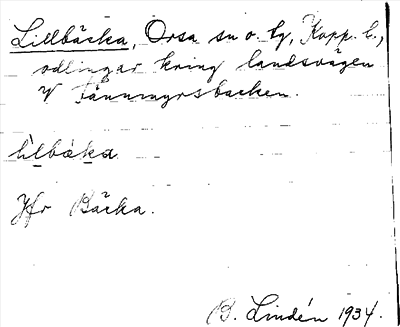 Lillbäcka, Orsa sn o. tg, Kopp. l.,
odlingar kring landsvägen
V Tännmyrsbacken.
lìlbäka
Jfr Bäcka.
B. Lindén 1934.